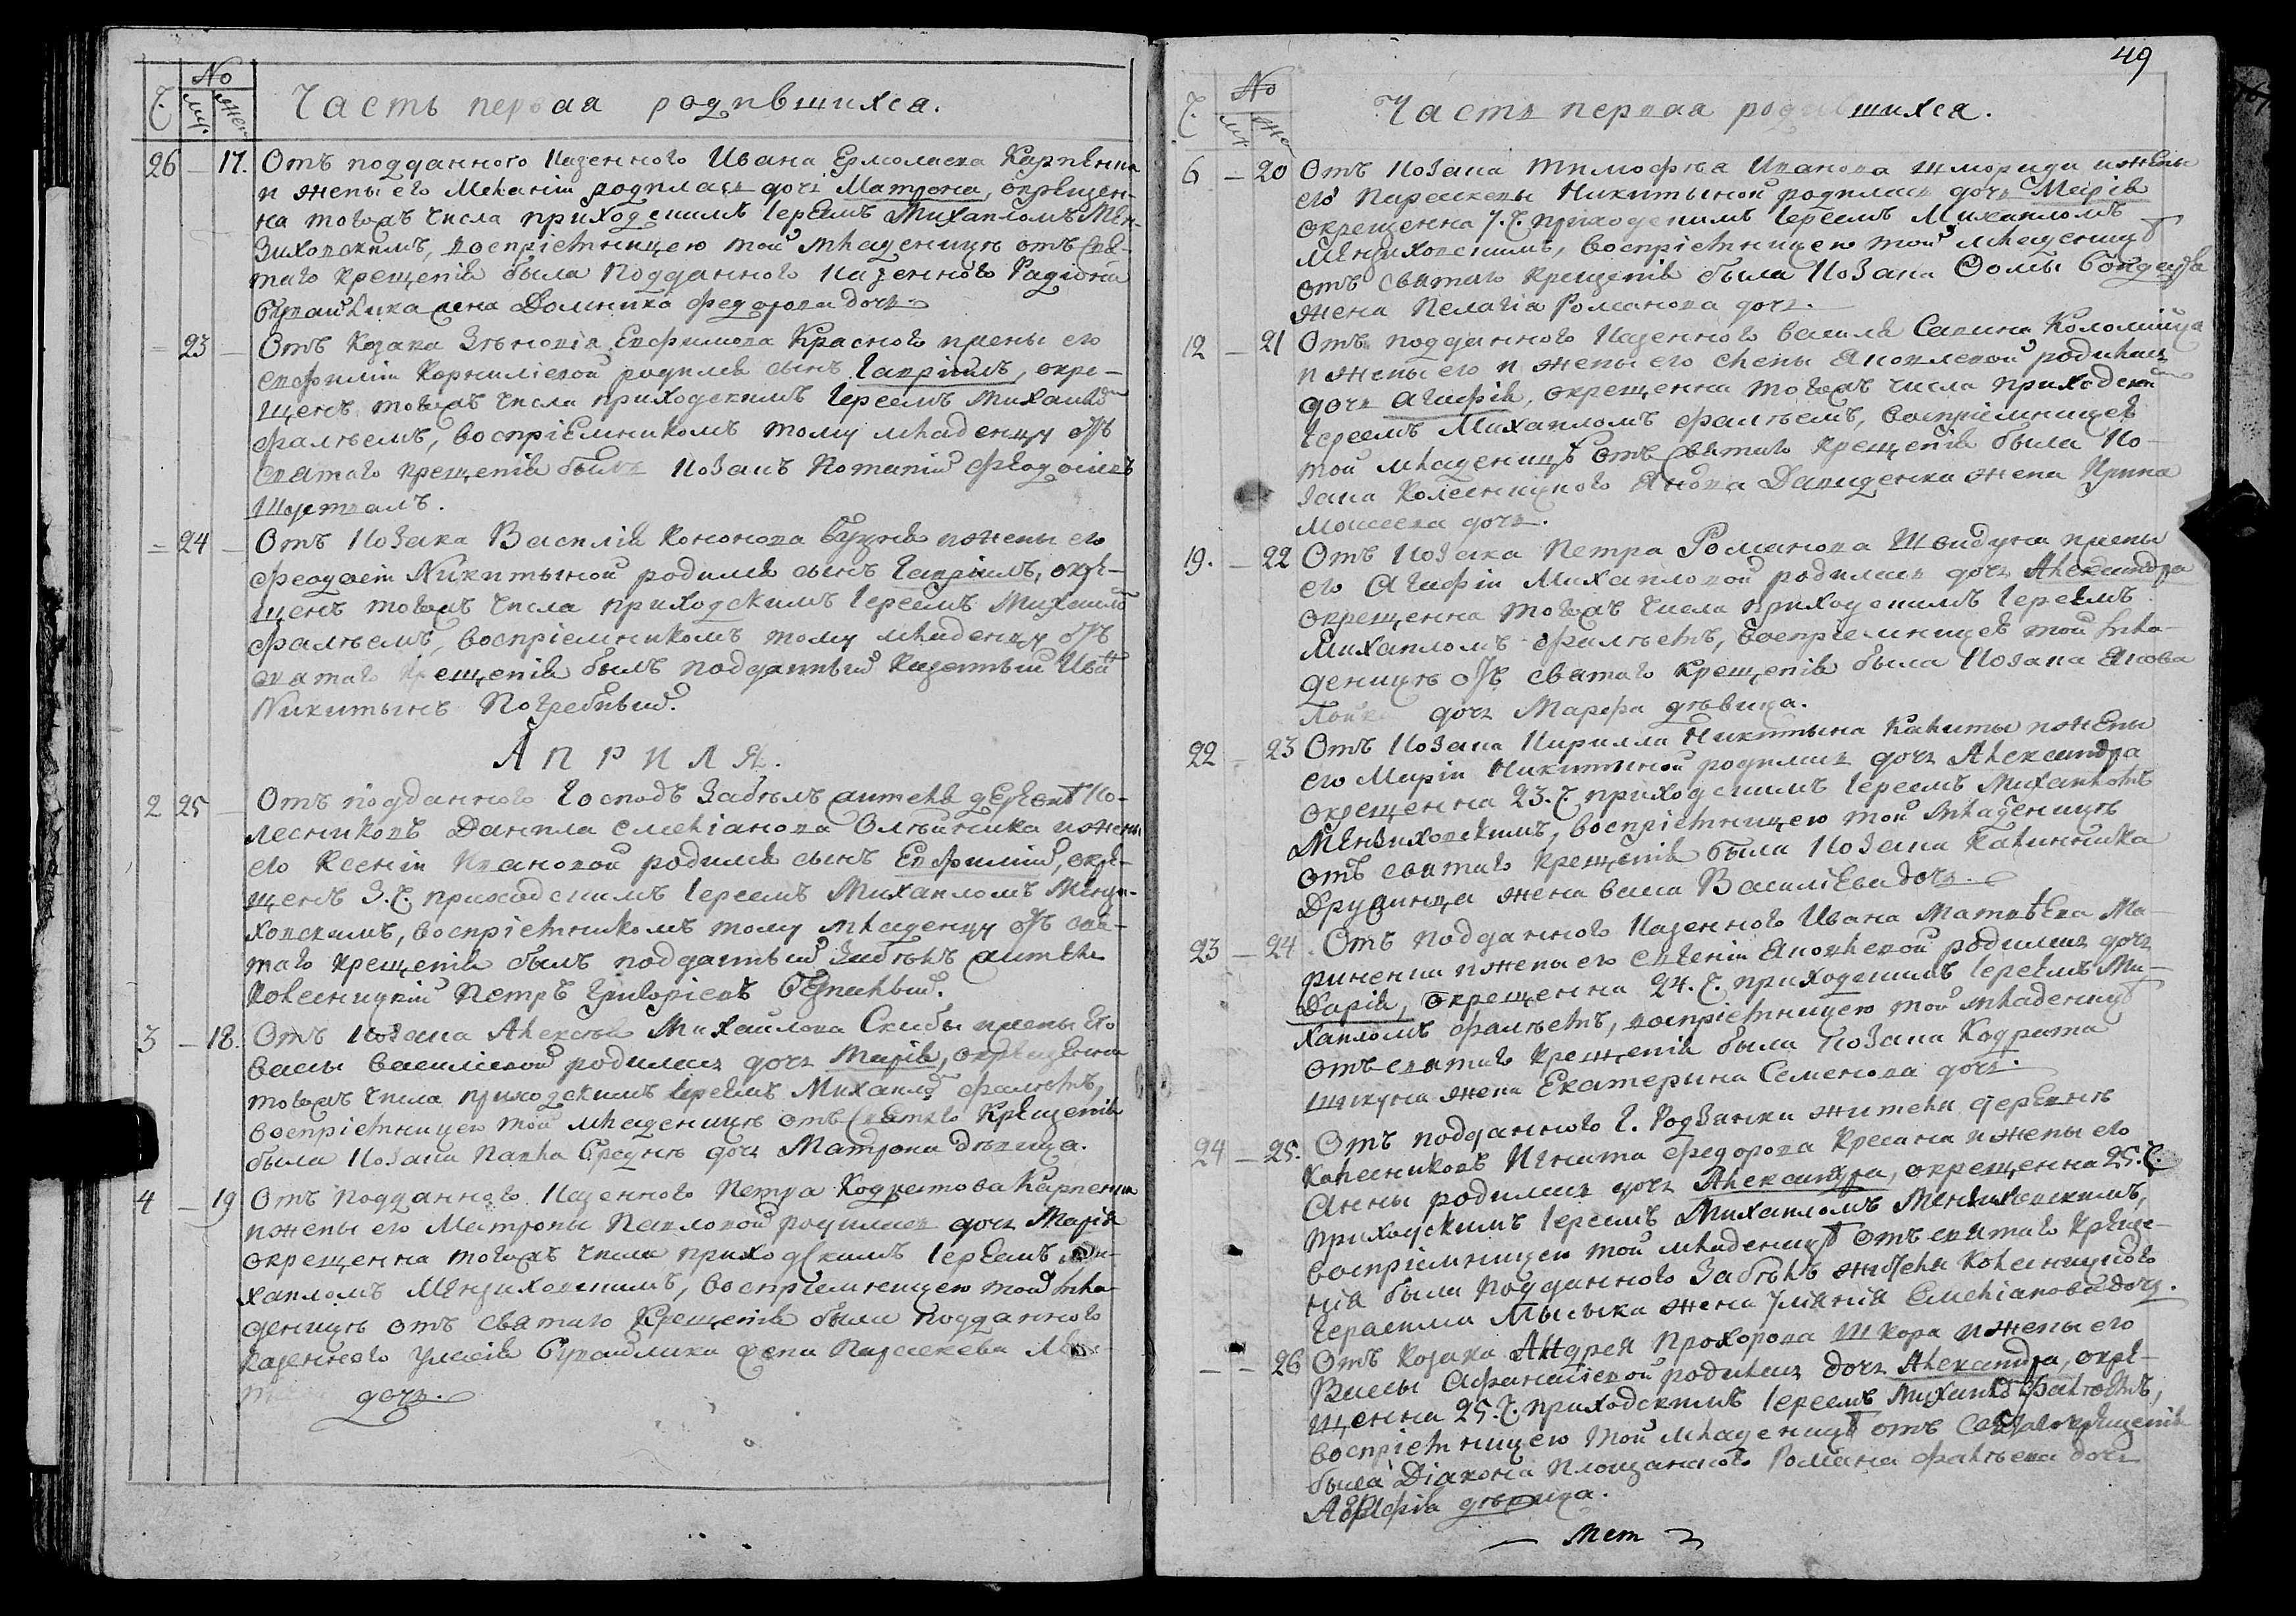 Ч. No муж. жен.
Часть первая родившихся.
26 — 17. Отъ подданного казенного Ивана Ермолаева Карпенка
и жены его Меланіи родилась дочь Матрона, окрещен-
на тогожъ числа приходскимъ Іереемъ Михаиломъ Мен-
зиховскимъ, воспріемницею той младеницѣ отъ Свя-
таго крещенія была подданного казенного Радіона
жена Домника Федорова дочь.
= 23 — Отъ Козака Зѣновія Евфимова Красного и жены его
Евфиміи Корниліевой родился сынъ Гавріилъ, окре-
щенъ тогожъ числа приходскимъ Іереемъ Михаиломъ
Фалѣемъ, воспріемникомъ тому младенцу отъ
святаго крещенія былъ козакъ Потапій Феодосіевъ
= 24 — Отъ козака Василія Кононова и жены его
Феодосіи Никитыной родился сынъ Гавріилъ, окре-
щенъ тогожъ числа приходскимъ Іереемъ Михаиломъ
Фалѣемъ, воспріемникомъ тому младенцу отъ
святаго крещенія былъ подданный казенный Иванъ
Никитынъ Погребный.
Априля.
2 25 — Отъ подданного Господъ Забѣлъ жителя деревнѣ Ко-
лесниковъ Даніила Емеліанова Олѣйника и жены
его Ксеніи Ивановой родился сынъ Евфимій, окре-
щенъ 3. Ч. приходскимъ Іереемъ Михаиломъ Мензи-
ховскимъ, воспріемникомъ тому младенцу отъ свя-
таго крещенія былъ подданный Забѣлъ житель
Колесницкій Петръ Григоріевъ
3 — 18. Отъ козака Алексѣя Михайлова Скибы и жены его
Васы Василіевой родилась дочь Марія, окрещенна
тогожъ числа приходскимъ Іереемъ Михаиломъ Фалѣемъ,
воспріемницею той младеницѣ отъ Святаго Крещенія
была козака Павла дочь Матрона дѣвица.
4 — 19 Отъ подданного казенного Петра Кодратова Карпенка
и жены его Матроны Павловой родилась дочь Марія
окрещенна тогожъ числа приходскимъ Іереемъ Ми-
хаиломъ Мензиховскимъ, воспріемницею той мла-
деницѣ отъ святаго Крещенія была подданного
казенного жена Параскева
дочь.
49
Ч. No муж. жен.
Часть первая родившихся.
6 — 20 Отъ козака Тимофѣя Иванова и жены
его Параскевы Никитыной родилась дочь Марія
окрещенна 7. Ч. приходскимъ Іереемъ Михаиломъ
Мензиховскимъ, воспріемницею той младеницѣ
отъ святаго крещенія была козака Фомы Бондаря
жена Пелагіа Романова дочь.
12 — 21 Отъ подданного казенного Василя Савина Коломійца
и жены его и жены его Елены Яковлевой родилась
дочь Агафія, окрещенна тогожъ числа приходскимъ
Іереемъ Михаиломъ Фалѣемъ, воспріемницею
той младеницѣ отъ святаго крещенія была ко-
зака Колесницкого Якова Давиденка жена Ирина
Моисеева дочь.
19. — 22 Отъ козака Петра Романова Швидуна и жены
его Агафіи Михаиловой родилась дочь Александра
окрещенна тогожъ числа приходскимъ Іереемъ
Михаиломъ Фалѣемъ, воспріемницею той мла-
деницѣ отъ святаго крещенія была козака Якова
дочь Марфа дѣвица.
22 = 23 Отъ козака Кирилла Никитына Калиты и жены
его Маріи Никитиной родилась дочь Александра
окрещенна 23. Ч. приходскимъ Іереемъ Михаиломъ
Мензиховскимъ, воспріемницею той младеницѣ
отъ святаго крещенія была козака Калинника
жена Васа Василіева дочь.
23 — 24. Отъ подданного казенного Ивана Матвѣева Ма-
риненка и жены его Евгеніи Яковлевой родилась дочь
Дарія, окрещенна 24. Ч. приходскимъ Іереемъ Ми-
хаиломъ Фалѣемъ, воспріемницею той младеницѣ
отъ святаго крещенія была козака Кодрата
жена Екатерина Семенова дочь.
24 — 25. Отъ подданного Г. Родзянки жителя деревнѣ
Колесниковъ Игната Федорова и жены его
Анны родилась дочь Александра, окрещенна 25. Ч.
приходскимъ Іереемъ Михаиломъ Мензиховскимъ,
воспріемницею той младеницѣ отъ святаго креще-
нія была подданного Забѣлъ жителя Колесницкого
Герасима Мысыка жена Уліянія Емеліанова дочь.
— — 26 Отъ козака Андрея Прохорова Шкора и жены его
Васы Афанасіевой родилась дочь Александра, окре-
щенна 25. Ч. приходскимъ Іереемъ Михаиломъ Фалѣемъ,
воспріемницею той младеницѣ отъ Святаго крещенія
была Діакона Площанского Романа Фалѣева дочь
дѣвица.